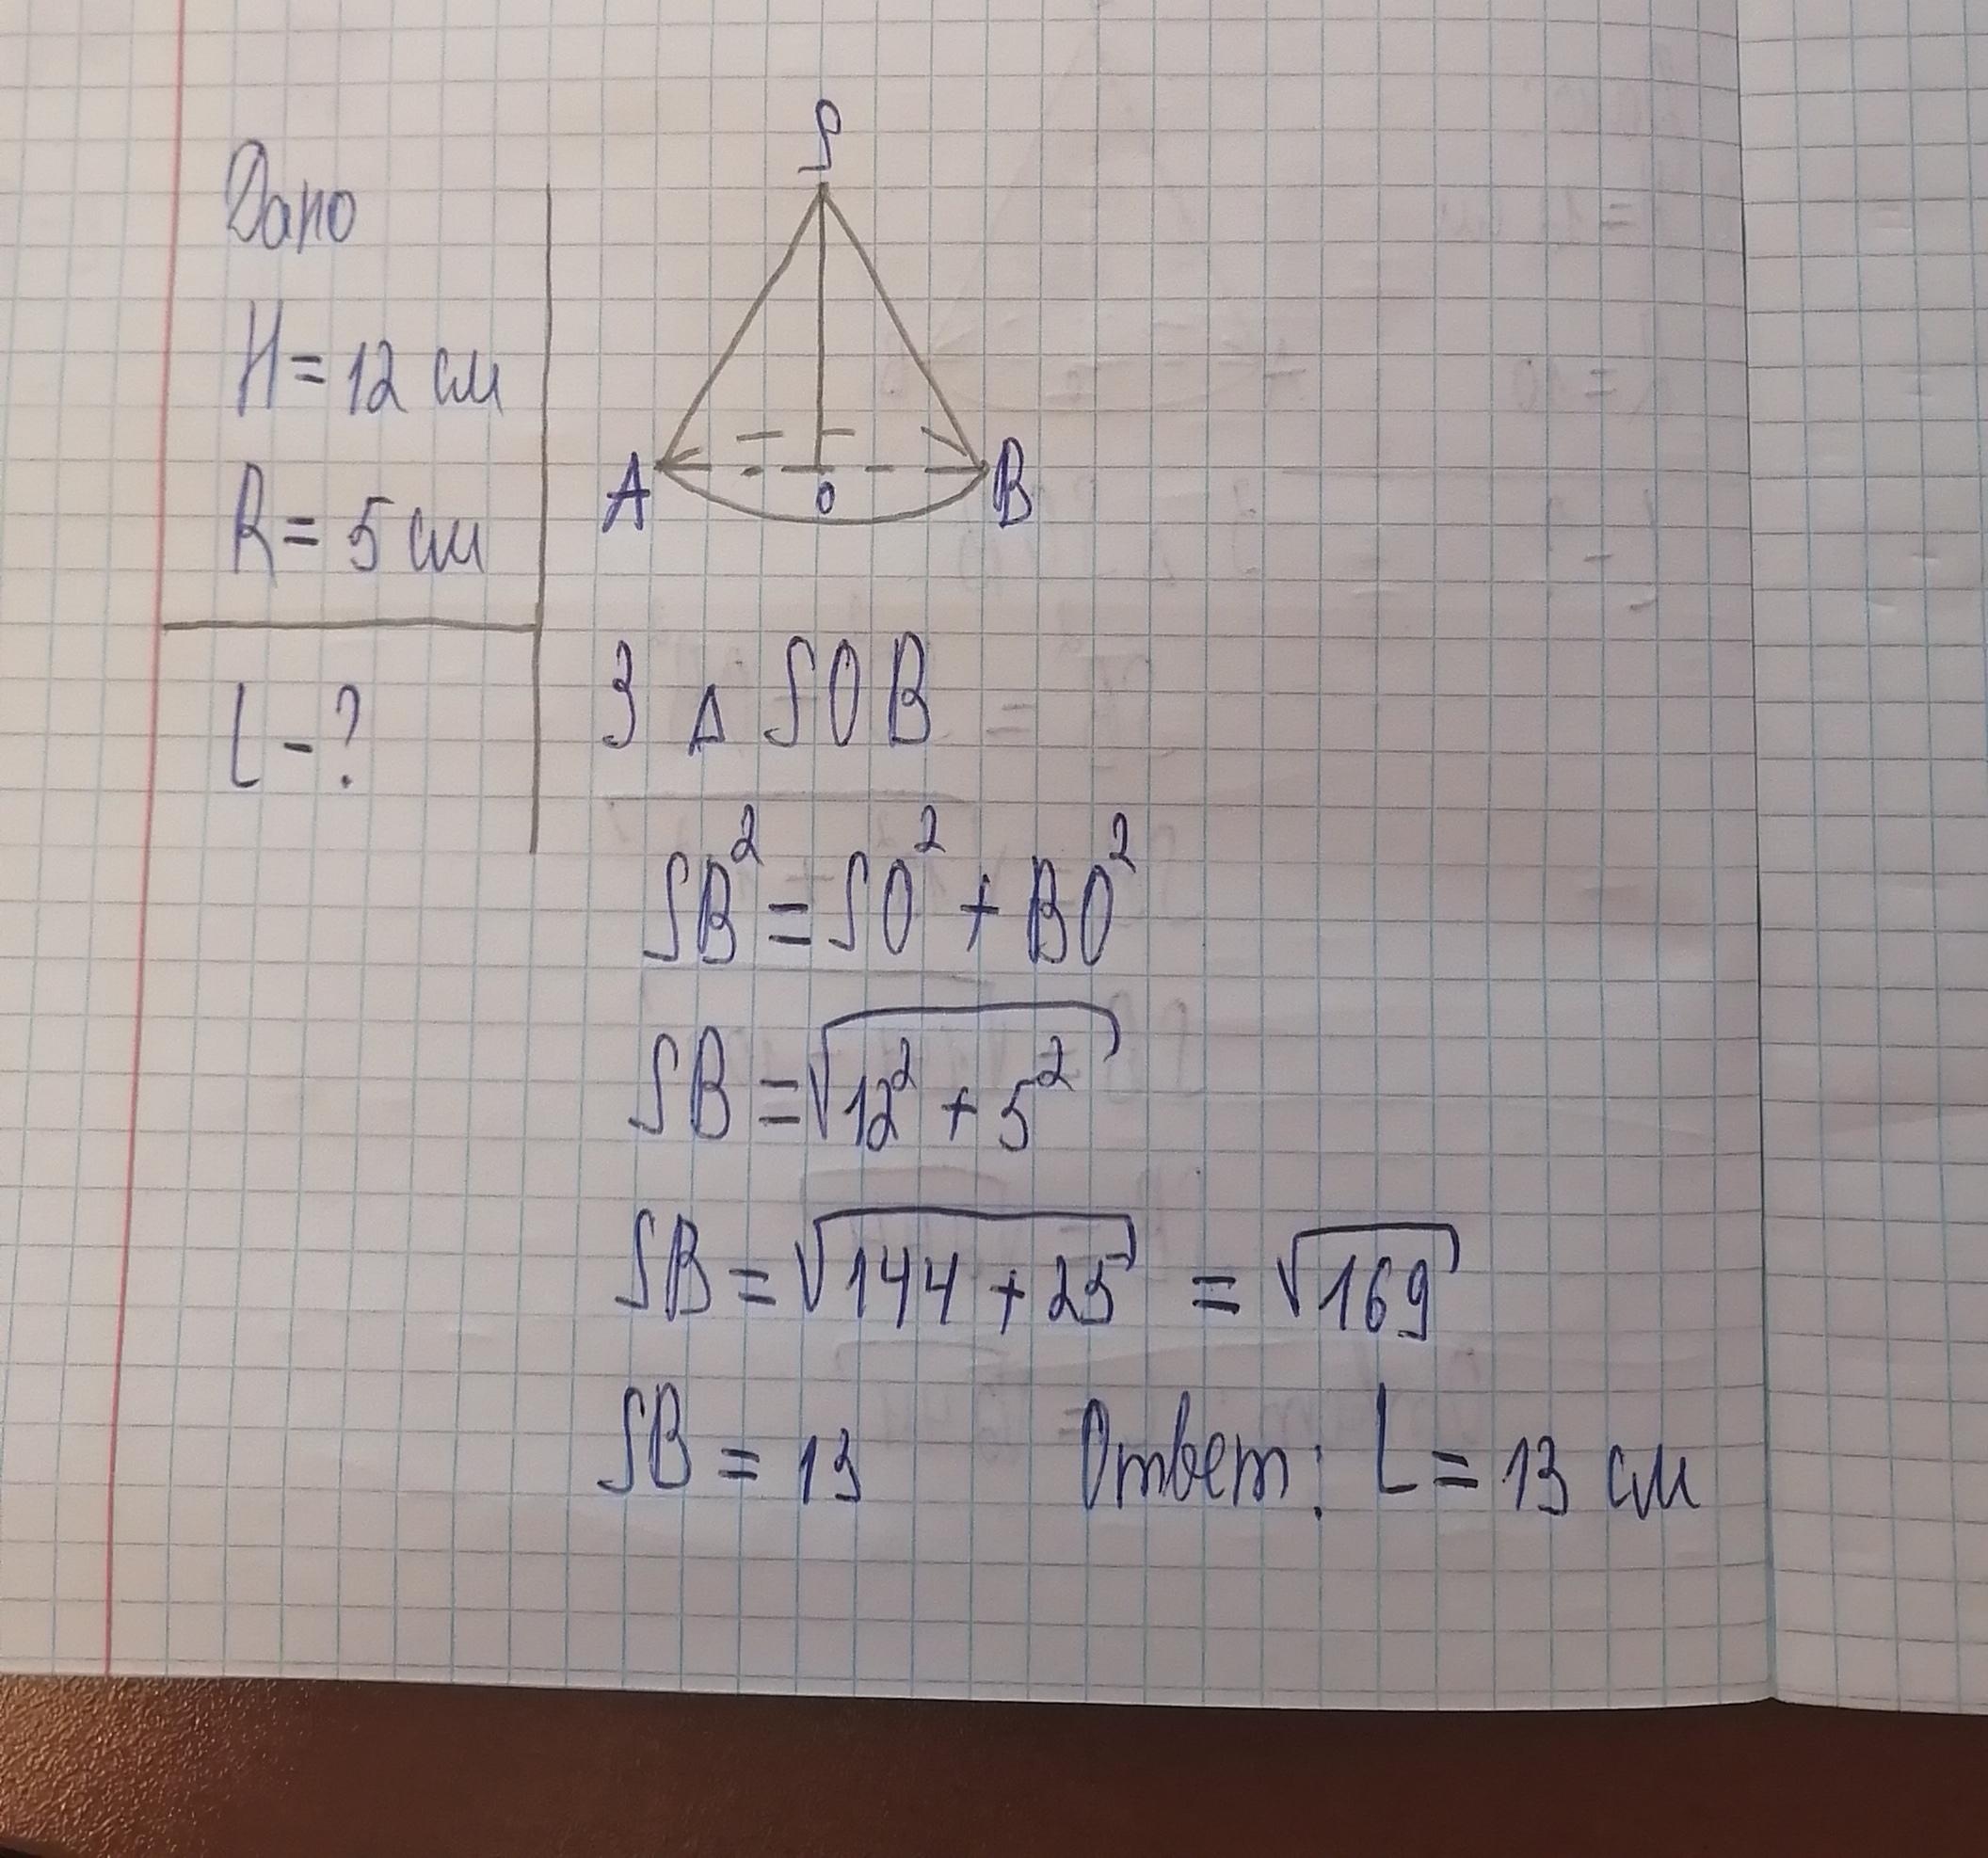 Дано
H = 12 см
R = 5 см
L - ?
S
A
O
B
З Δ SOB
SB² = SO² + BO²
SB = √12² + 5²
SB = √144 + 25 = √169
SB = 13 Ответ: L = 13 см